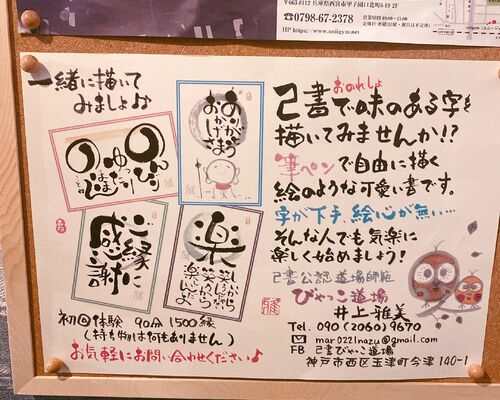 〒663-8112 兵庫県西宮市甲子園口北町6-19 2F
☎0798-67-2378
HP https://www.nolgym.net
一緒に描いて
みましょ♪
おかげさま
ありがとう
のんびり
ゆったり
のほほん
ご縁に
感謝
楽
楽しいから
笑うんじゃない
笑うから
楽しいんだよ
己書で味のある字を
おのれしょ
描いてみませんか!?
筆ペンで自由に描く
絵のような可愛い書です。
字が下手、絵心が無い…
そんな人でも気楽に
楽しく始めましょう!
己書公認道場師範
ぴゃっこ道場
井上雅美
Tel. 090(2060)9670
mar0221nazu@gmail.com
FB 己書ぴゃっこ道場
神戸市西区玉津町今津140-1
初回体験 90分 1500縁
(持ち物は何もありません)
お気軽にお問い合わせください♪